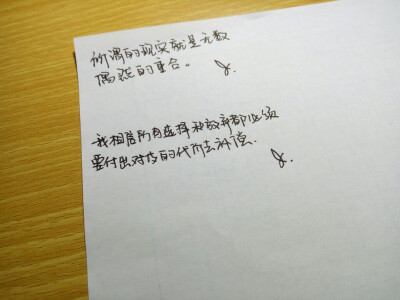 所谓的现实就是无数
偶然的重合。
我相信所有选择和放弃都必须
要付出对应的代价去补偿.